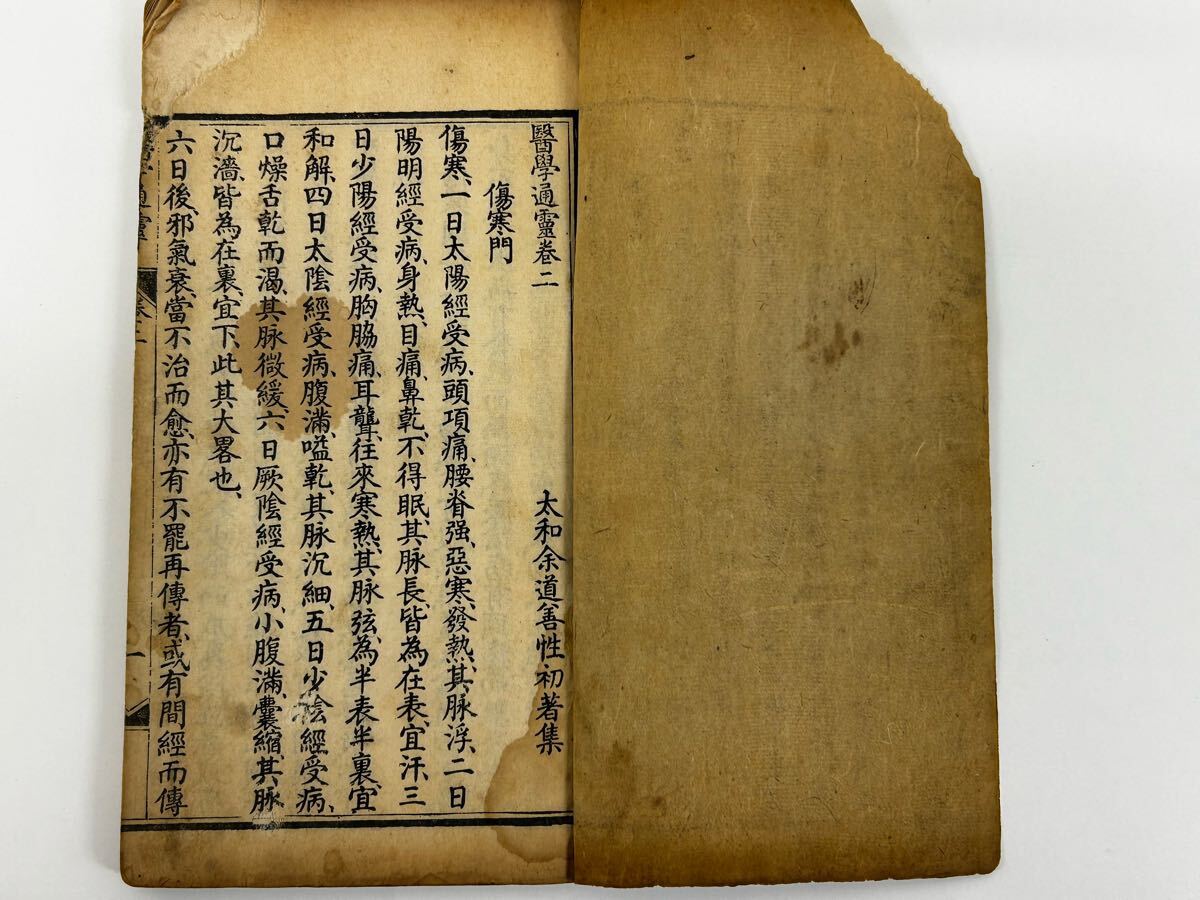 醫學通靈卷二
太和余道善性初著集
傷寒門
傷寒、一日太陽經受病、頭項痛、腰脊强、惡寒、發熱、其脉浮、二日
陽明經受病、身熱、目痛、鼻乾、不得眠、其脉長、皆為在表、宜汗、三
日少陽經受病、胸脇痛、耳聾、往來寒熱、其脉弦、為半表半裏、宜
和解、四日太陰經受病、腹滿、嗌乾、其脉沉細、五日少陰經受病、
口燥舌乾而渴、其脉微緩、六日厥陰經受病、小腹滿、囊縮、其脉
沉濇、皆為在裏、宜下、此其大畧也、
六日後、邪氣衰、當不治而愈、亦有不罷再傳者、或有間經而傳
醫學通靈
卷二
一